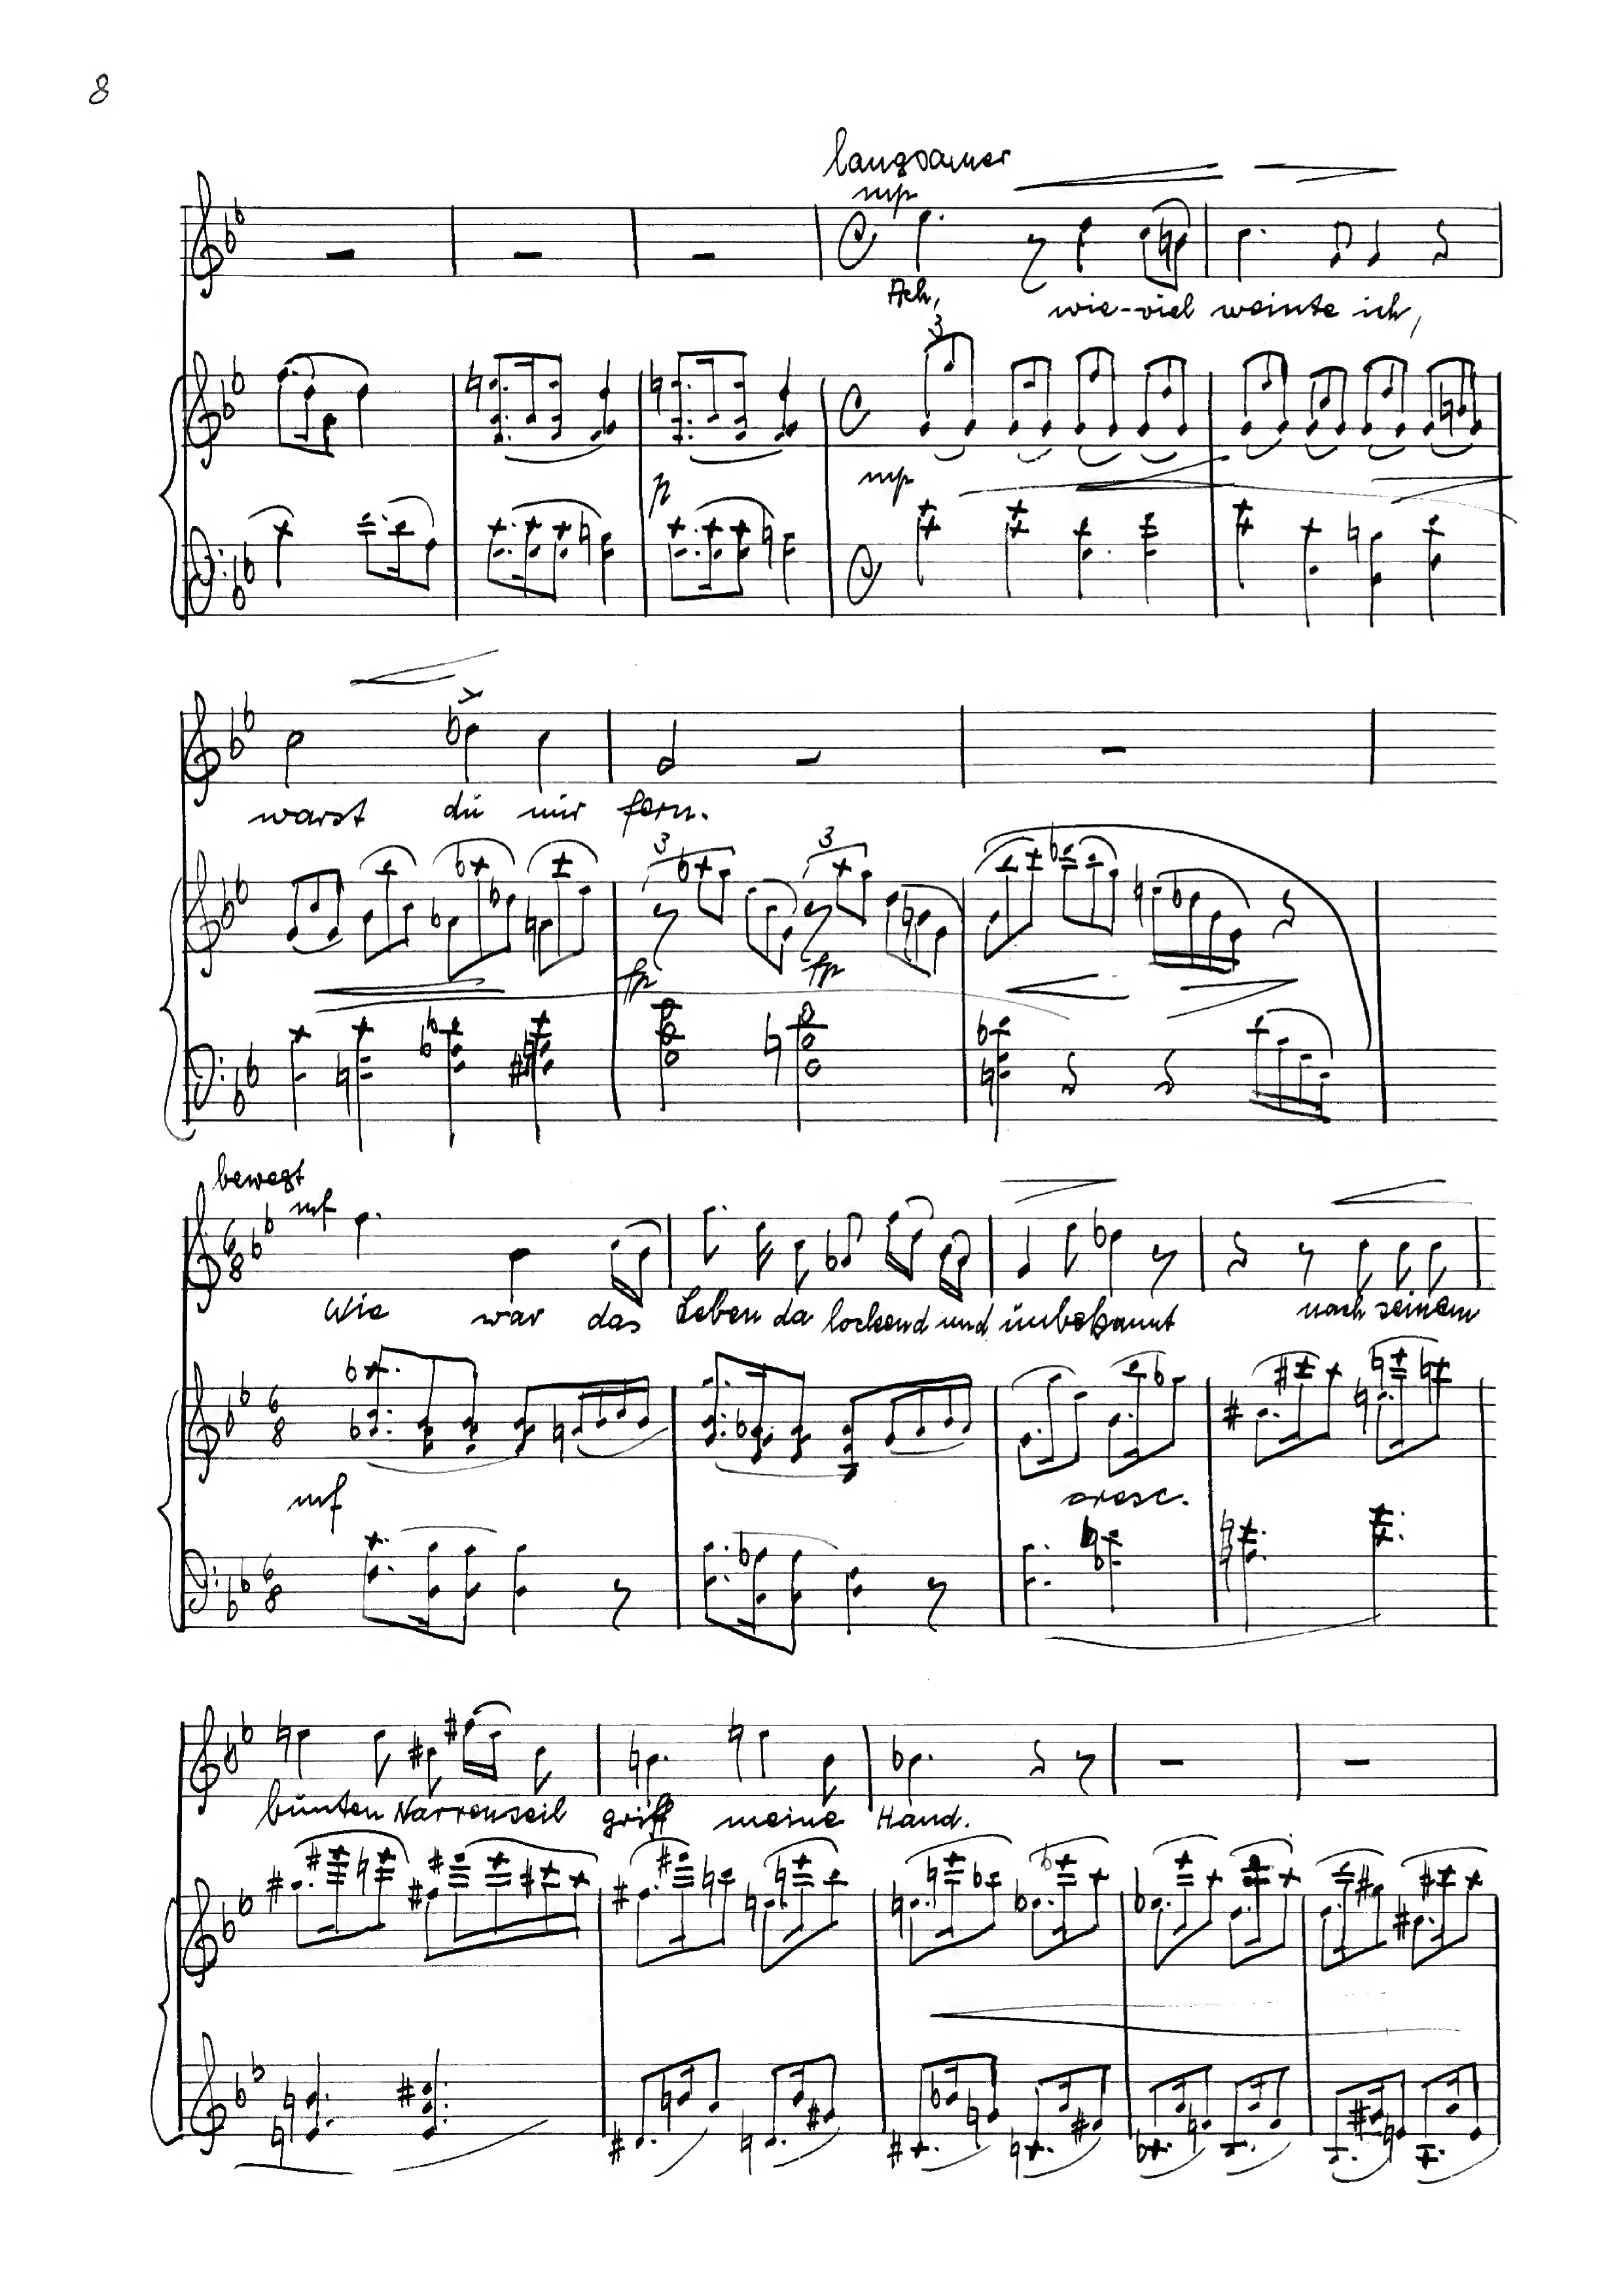 8
langsamer
mp
Ach, wie-viel weinte ich,
3
mp
p
warst du mir fern.
3 3
fp fp
bewegt
mf
6
8
Wie war das Leben da lockend und unbekannt nach seinem
6
8
mf cresc.
6
8
bunten Narrenseil griff meine Hand.